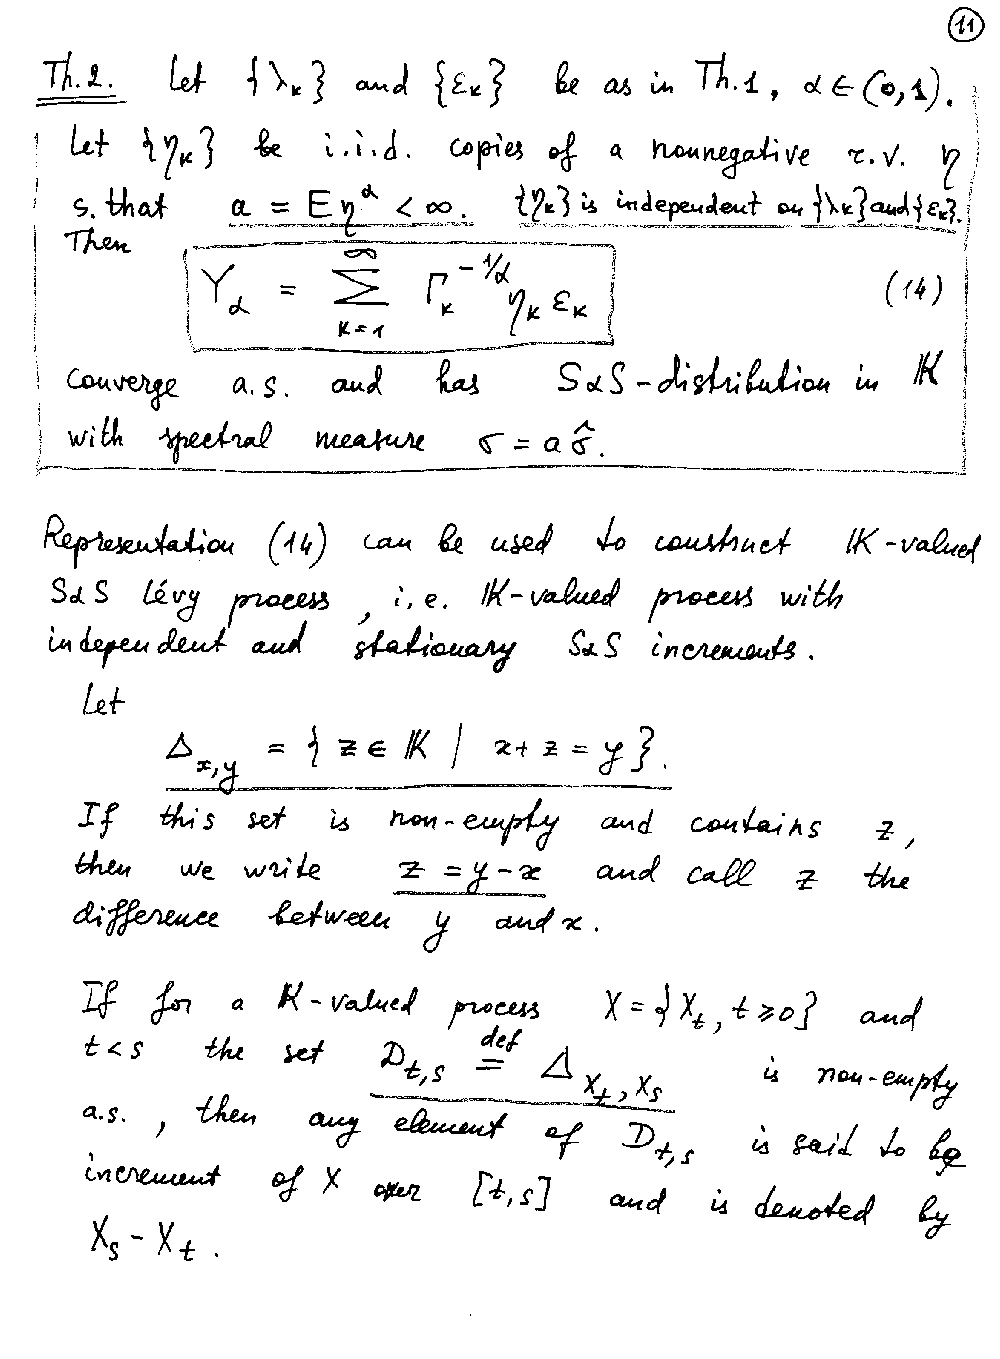 11
Th.2. Let {λ_k} and {ε_k} be as in Th.1, α ∈ (0,1).
Let {η_k} be i.i.d. copies of a nonnegative r.v. η
s. that a = Eη^α < ∞. {η_k} is independent on {λ_k} and {ε_k}.
Then
Y_α = ∑_{k=1}^∞ Γ_k^{-1/α} η_k ε_k (14)
converge a.s. and has SαS-distribution in 𝕂
with spectral measure σ = a σ̂.
Representation (14) can be used to construct 𝕂-valued
SαS Lévy process, i.e. 𝕂-valued process with
independent and stationary SαS increments.
Let
Δ_{x,y} = { z ∈ 𝕂 | x + z = y }.
If this set is non-empty and contains z,
then we write z = y - x and call z the
difference between y and x.
If for a 𝕂-valued process X = {X_t, t ≥ 0} and
t < s the set D_{t,s} \overset{def}{=} Δ_{X_t, X_s} is non-empty
a.s., then any element of D_{t,s} is said to be
increment of X over [t,s] and is denoted by
X_s - X_t.